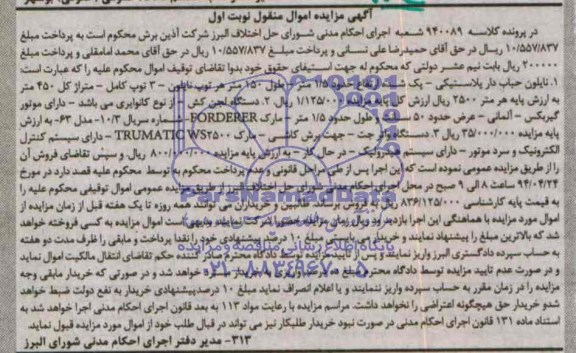 آگهی مزایده اموال منقول نوبت اول
در پرونده کلاسه ۹۴۰۰۸۹ شعبه اجرای احکام مدنی شورای حل اختلاف البرز شرکت آذین برش محکوم است به پرداخت مبلغ
۱۰/۵۵۷/۸۳۷ ریال در حق آقای حمیدرضا علی نسانی و پرداخت مبلغ ۱۰/۵۵۷/۸۳۷ ریال در حق آقای محمد امامقلی و پرداخت مبلغ
۲۰۰۰۰۰ ریال بابت نیم عشر دولتی که محکوم له جهت استیفای حقوق خود بدوا تقاضای توقیف اموال محکوم علیه را که عبارت است:
۱. نایلون حباب دار پلاستیکی - یک شیت ارتفاع حدود ۱/۵ متر بطول ۱۵۰ متر هر توپ نایلون - ۳ توپ کامل - متراژ کل ۴۵۰ متر
به ارزش پایه هر متر ۲۵۰۰ ریال ارزش کل پایه مزایده ۱/۱۲۵/۰۰۰ ریال ۲. دستگاه لجن کش از نوع کانوایری می باشد - دارای موتور
گیربکس - آلمانی - عرض حدود ۵۰ سانت طول حدود ۱/۵ متر مارک FORDERER شماره سریال ۱۰/۳ - مدل ۶۳- به ارزش
پایه مزایده ۳۵/۰۰۰/۰۰۰ ریال ۳. دستگاه واتر جت - جهت برش کاشی - مارک TRUMATIC WS۲۵۰۰ - دارای سیستم کنترل
الکترونیک و سرد موتور - دارای سیستم هیدرولیک - در حال کار - به ارزش پایه مزایده ۸۰۰/۰۰۰/۰۰۰ ریال و سپس تقاضای فروش آن
را از طریق مزایده عمومی نموده است که این اجرا پس از طی مراحل قانونی و عدم پرداخت محکوم به توسط محکوم علیه قصد دارد در مورخ
۹۴/۰۴/۲۴ ساعت ۸ الی ۹ صبح در محل اجرای احکام مدنی شورای حل اختلاف البرز از طریق مزایده عمومی اموال توقیفی محکوم علیه را
به قیمت پایه کارشناسی ۸۳۶/۱۲۵/۰۰۰ ریال به فروش برساند. طالبین و خریداران می توانند همه روزه تا یک هفته قبل از زمان مزایده از
اموال مورد مزایده با هماهنگی این اجرا بازدید و در زمان مزایده حضورا شرکت نمایند. بدیهی است اموال مزایده به کسی فروخته خواهد
شد که بالاترین مبلغ را پیشنهاد نمایند و خریدار می بایستی مبلغ ۱۰ درصد پیشنهادی خود را نقدا پرداخت و مابقی را ظرف مدت دو هفته
به حساب سپرده دادگستری البرز واریز نمایند و پس از تایید مزایده توسط دادگاه محترم صادر کننده حکم تقاضای انتقال مالکیت اموال نماید
و در صورت عدم تایید مزایده توسط دادگاه محترم مبلغ ده درصد واریزی به خریدار مسترد خواهد شد و در صورتی که خریدار مابقی وجه
مزایده را در زمان مقرر به حساب سپرده واریز ننمایند و یا اعلام انصراف نماید مبلغ ۱۰ درصد پیشنهادی خریدار به نفع دولت ضبط خواهد
شدو خریدار حق هیچگونه اعتراضی را نخواهد داشت. مراسم مزایده با رعایت مواد ۱۱۳ به بعد قانون اجرای احکام مدنی اجرا خواهد شد به
استناد ماده ۱۳۱ قانون اجرای احکام مدنی در صورت نبود خریدار طلبکار نیز می تواند در قبال طلب خود از اموال مورد مزایده قبول نماید.
۳۱۳- مدیر دفتر اجرای احکام مدنی شورای البرز
ParsNamadData
پایگاه اطلاع رسانی مناقصه و مزایده
۰۲۱-۸۸۳۴۹۶۷۰-۵